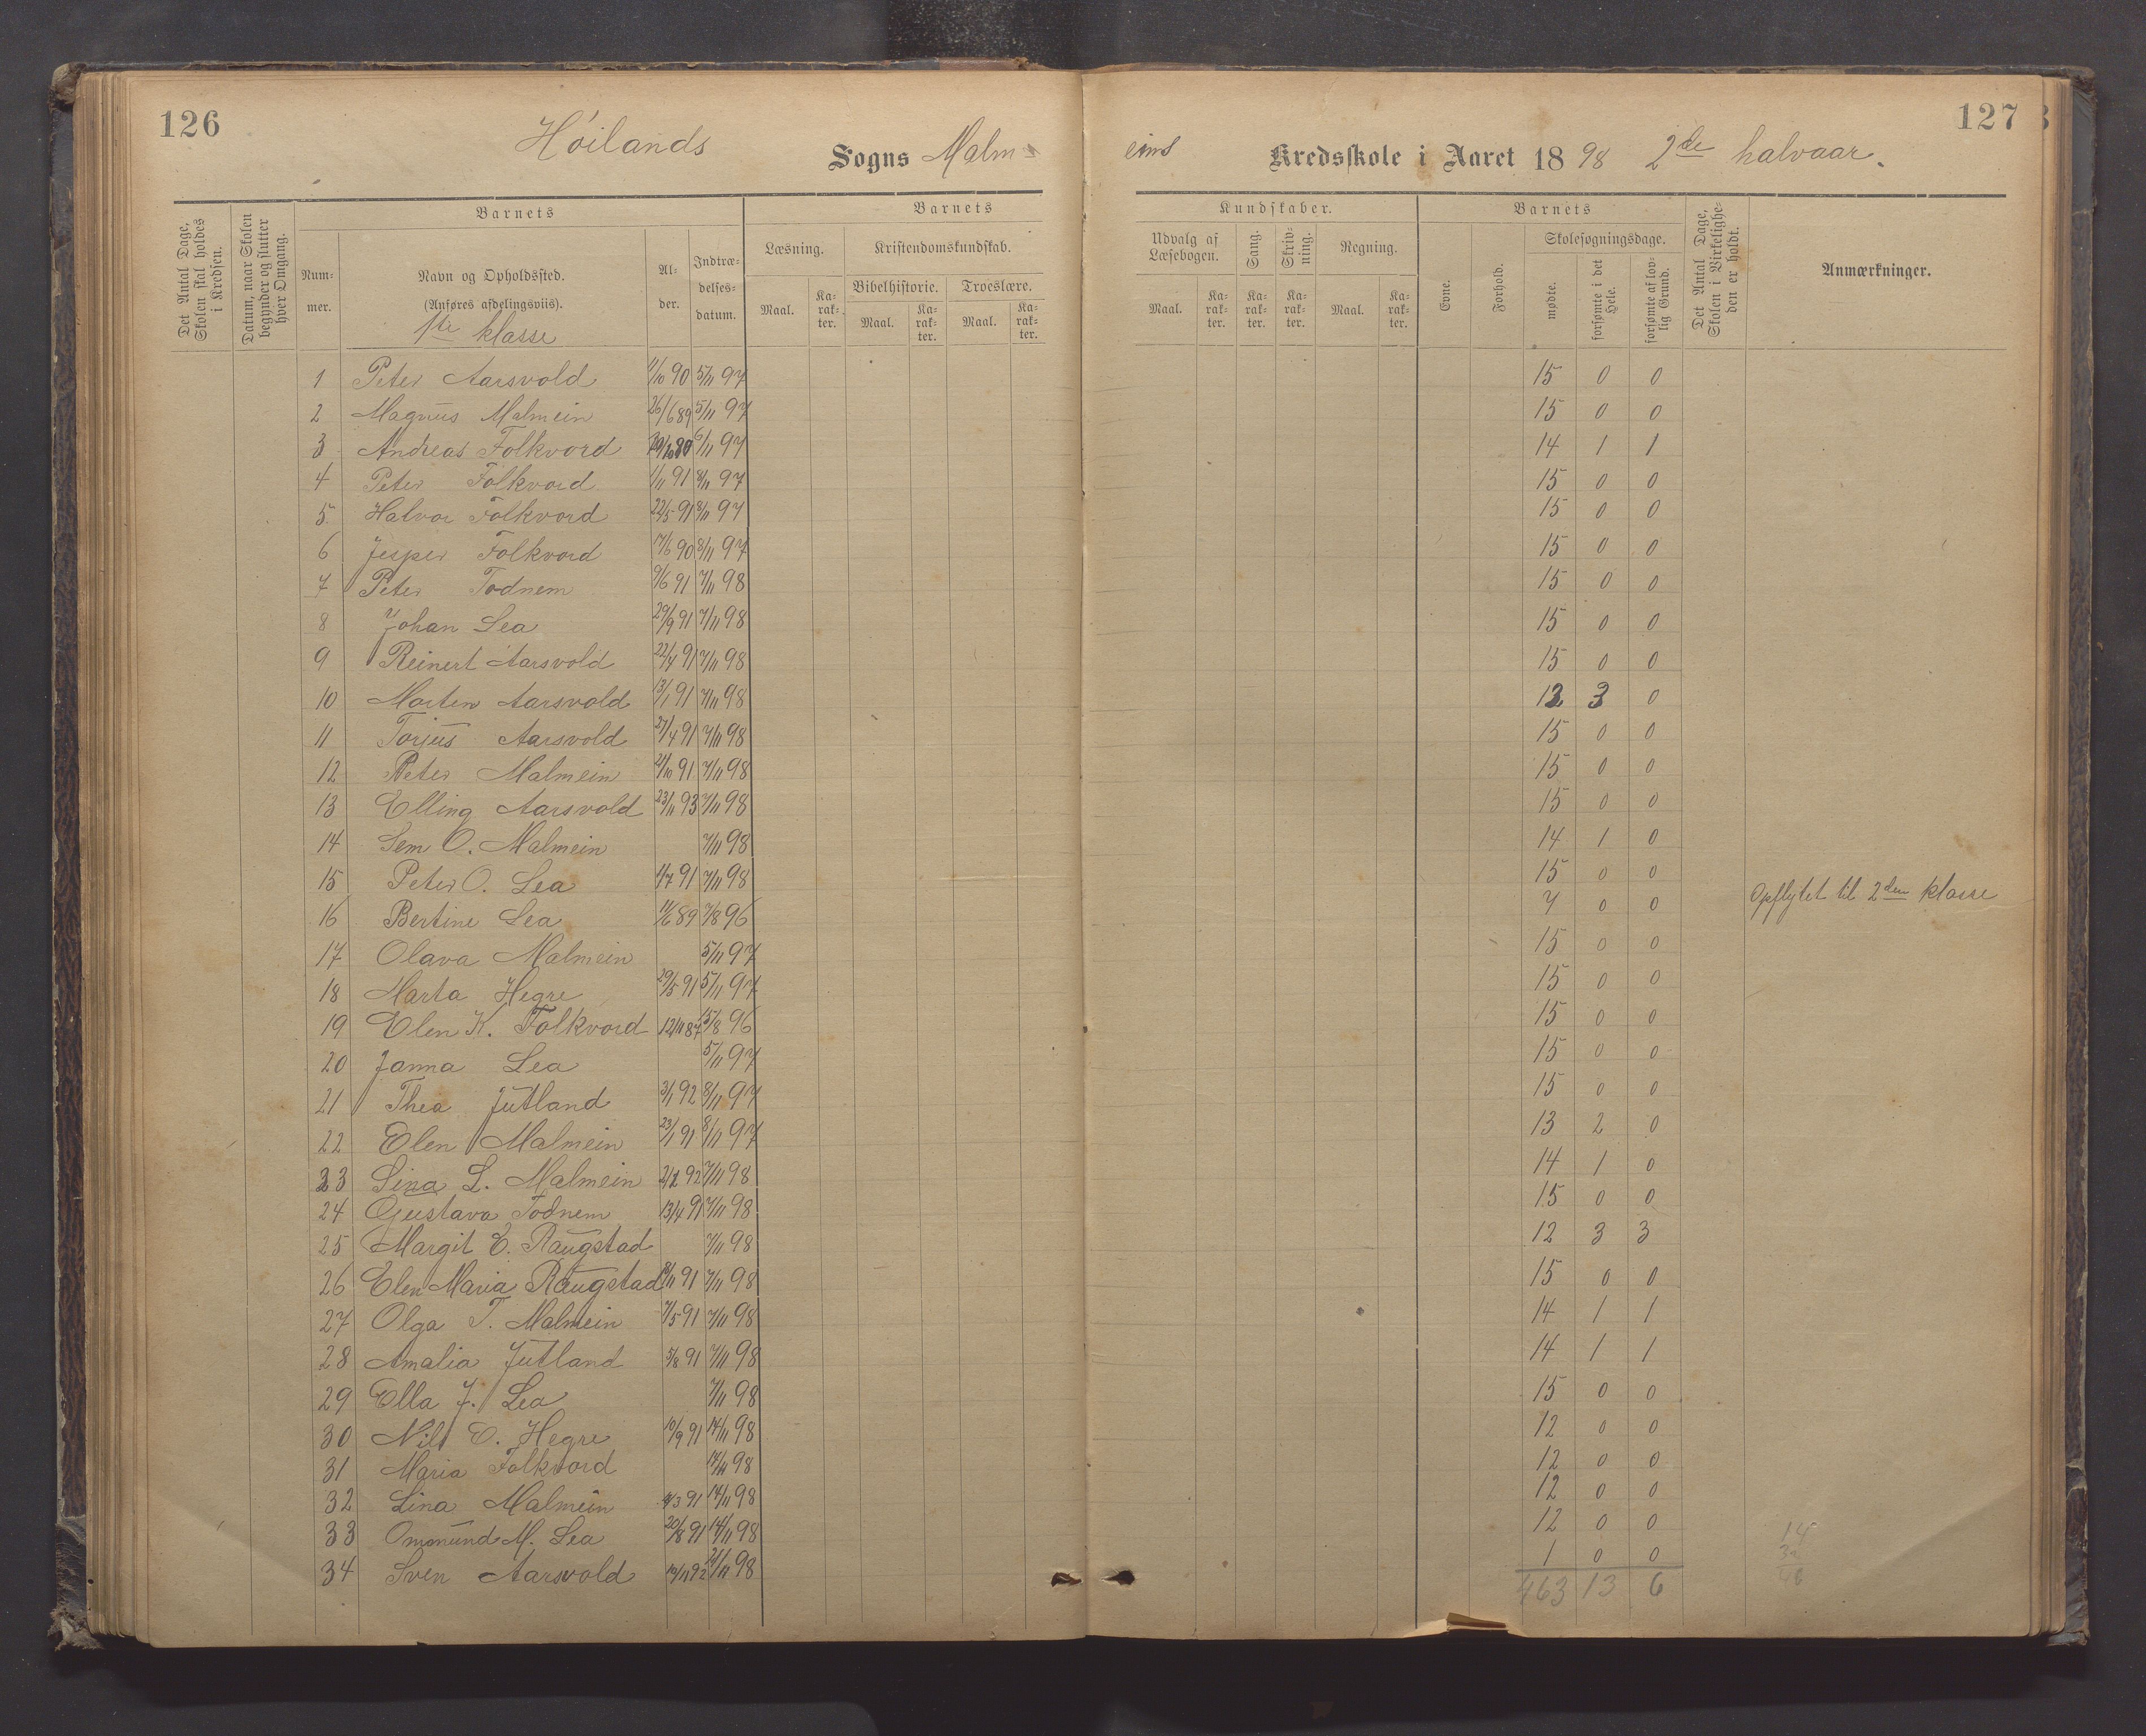 126
127
Höilands Sogns Malmeims Kredsskole i Aaret 1898 2de halvaar.
Det Antal Dage, Skolen skal holdes i Kredsen.
Datum, naar Skolen begynder og slutter hver Omgang.
Barnets
Nummer.
Navn og Opholdssted.
(Anføres afdelingsviis).
1ste klasse
Alder.
Indtrædelsesdatum.
Barnets Kundskaber.
Læsning.
Maal. Karakter.
Kristendomskundskab.
Bibelhistorie. Troeslære.
Maal. Karakter. Maal. Karakter.
Udvalg af Læsebogen.
Maal. Karakter.
Sang.
Karakter.
Skrivning.
Karakter.
Regning.
Maal. Karakter.
Barnets
Evne.
Forhold.
Skolesøgningsdage.
mødte.
forsømte i det Hele.
forsømte af lovlig Grund.
Det Antal Dage, Skolen i Virkeligheden er holdt.
Anmærkninger.
1 Peter Aarsvold 11/10 90 5/11 97 15 0 0
2 Magnus Malmein 26/6 89 5/11 97 15 0 0
3 Andreas Folkvord 6/11 97 14 1 1
4 Peter Folkvord 1/11 91 8/11 97 15 0 0
5 Halvor Folkvord 22/5 91 8/11 97 15 0 0
6 Jesper Folkvord 17/6 90 8/11 97 15 0 0
7 Peter Todnem 9/6 91 7/11 98 15 0 0
8 Johan Lea 29/9 91 7/11 98 15 0 0
9 Reinert Aarsvold 22/4 91 7/11 98 15 0 0
10 Morten Aarsvold 13/1 91 7/11 98 12 3 0
11 Torjus Aarsvold 27/4 91 7/11 98 15 0 0
12 Peter Malmein 21/10 91 7/11 98 15 0 0
13 Elling Aarsvold 23/11 93 7/11 98 15 0 0
14 Sem O. Malmein 7/11 98 14 1 0
15 Peter O. Lea 4/7 91 7/11 98 15 0 0
16 Bertine Lea 11/6 89 7/8 96 7 0 0 Opflytet til 2den klasse
17 Olava Malmein 5/11 97 15 0 0
18 Marta Hegre 29/5 91 5/11 97 15 0 0
19 Elen K. Folkvord 12/11 87 15/8 96 15 0 0
20 Janna Lea 5/11 97 15 0 0
21 Thea Jutland 3/1 92 8/11 97 15 0 0
22 Elen Malmein 23/1 91 8/11 97 13 2 0
23 Sina L. Malmein 92 7/11 98 14 1 0
24 Gustava Todnem 13/4 91 7/11 98 15 0 0
25 Margit E. Raugstad 7/11 98 12 3 3
26 Elen Maria Raugstad 8/11 91 7/11 98 15 0 0
27 Olga T. Malmein 7/5 91 7/11 98 14 1 1
28 Amalia Jutland 5/8 91 7/11 98 14 1 1
29 Ella J. Lea 7/11 98 15 0 0
30 Nils E. Hegre 10/9 91 14/11 98 12 0 0
31 Maria Folkvord 14/11 98 12 0 0
32 Lina Malmein 91 14/11 98 12 0 0
33 Ommund M. Lea 20/8 91 14/11 98 12 0 0
34 Sven Aarsvold 12/11 92 98 1 0 0
463 13 6
14